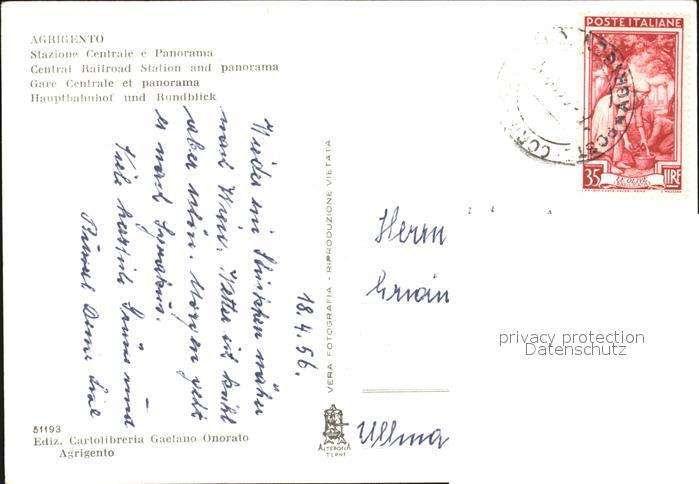 AGRIGENTO
Stazione Centrale e Panorama
Central Railroad Station and panorama
Gare Centrale et panorama
Hauptbahnhof und Rundblick
POSTE ITALIANE
LE OLIVE
35 LIRE
18.4.56.
Wieder ein Stückchen näher
nach Wien. Wetter ist kühl
aber schön. Morgen geht
es nach Syrakus.
Viele herzliche Grüsse und
VERA FOTOGRAFIA - RIPRODUZIONE VIETATA
Herrn
privacy protection
Datenschutz
Ullma
ALTEROCCA
TERNI
51193
Ediz. Cartolibreria Gaetano Onorato
Agrigento